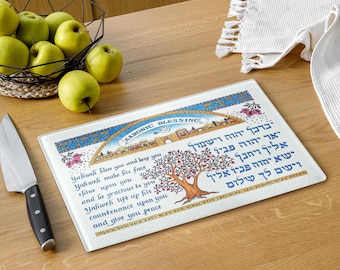 AARONIC BLESSING
Yahweh bless you and keep you
Yahweh make his face
shine upon you
and be gracious to you
Yahweh lift up his
countenance upon you
and give you peace
יברכך יהוה וישמרך
יאר יהוה פניו
אליך ויחנך
ישא יהוה פניו אליך
וישם לך שלום